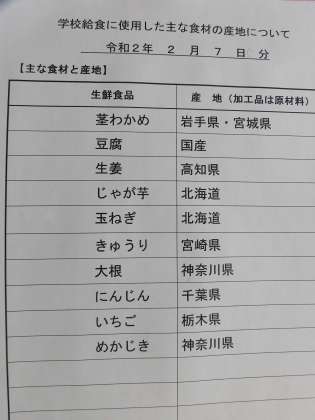 学校給食に使用した主な食材の産地について
令和2年 2 月 7 日 分
【主な食材と産地】
生鮮食品 産 地（加工品は原材料）
茎わかめ 岩手県・宮城県
豆腐 国産
生姜 高知県
じゃが芋 北海道
玉ねぎ 北海道
きゅうり 宮崎県
大根 神奈川県
にんじん 千葉県
いちご 栃木県
めかじき 神奈川県